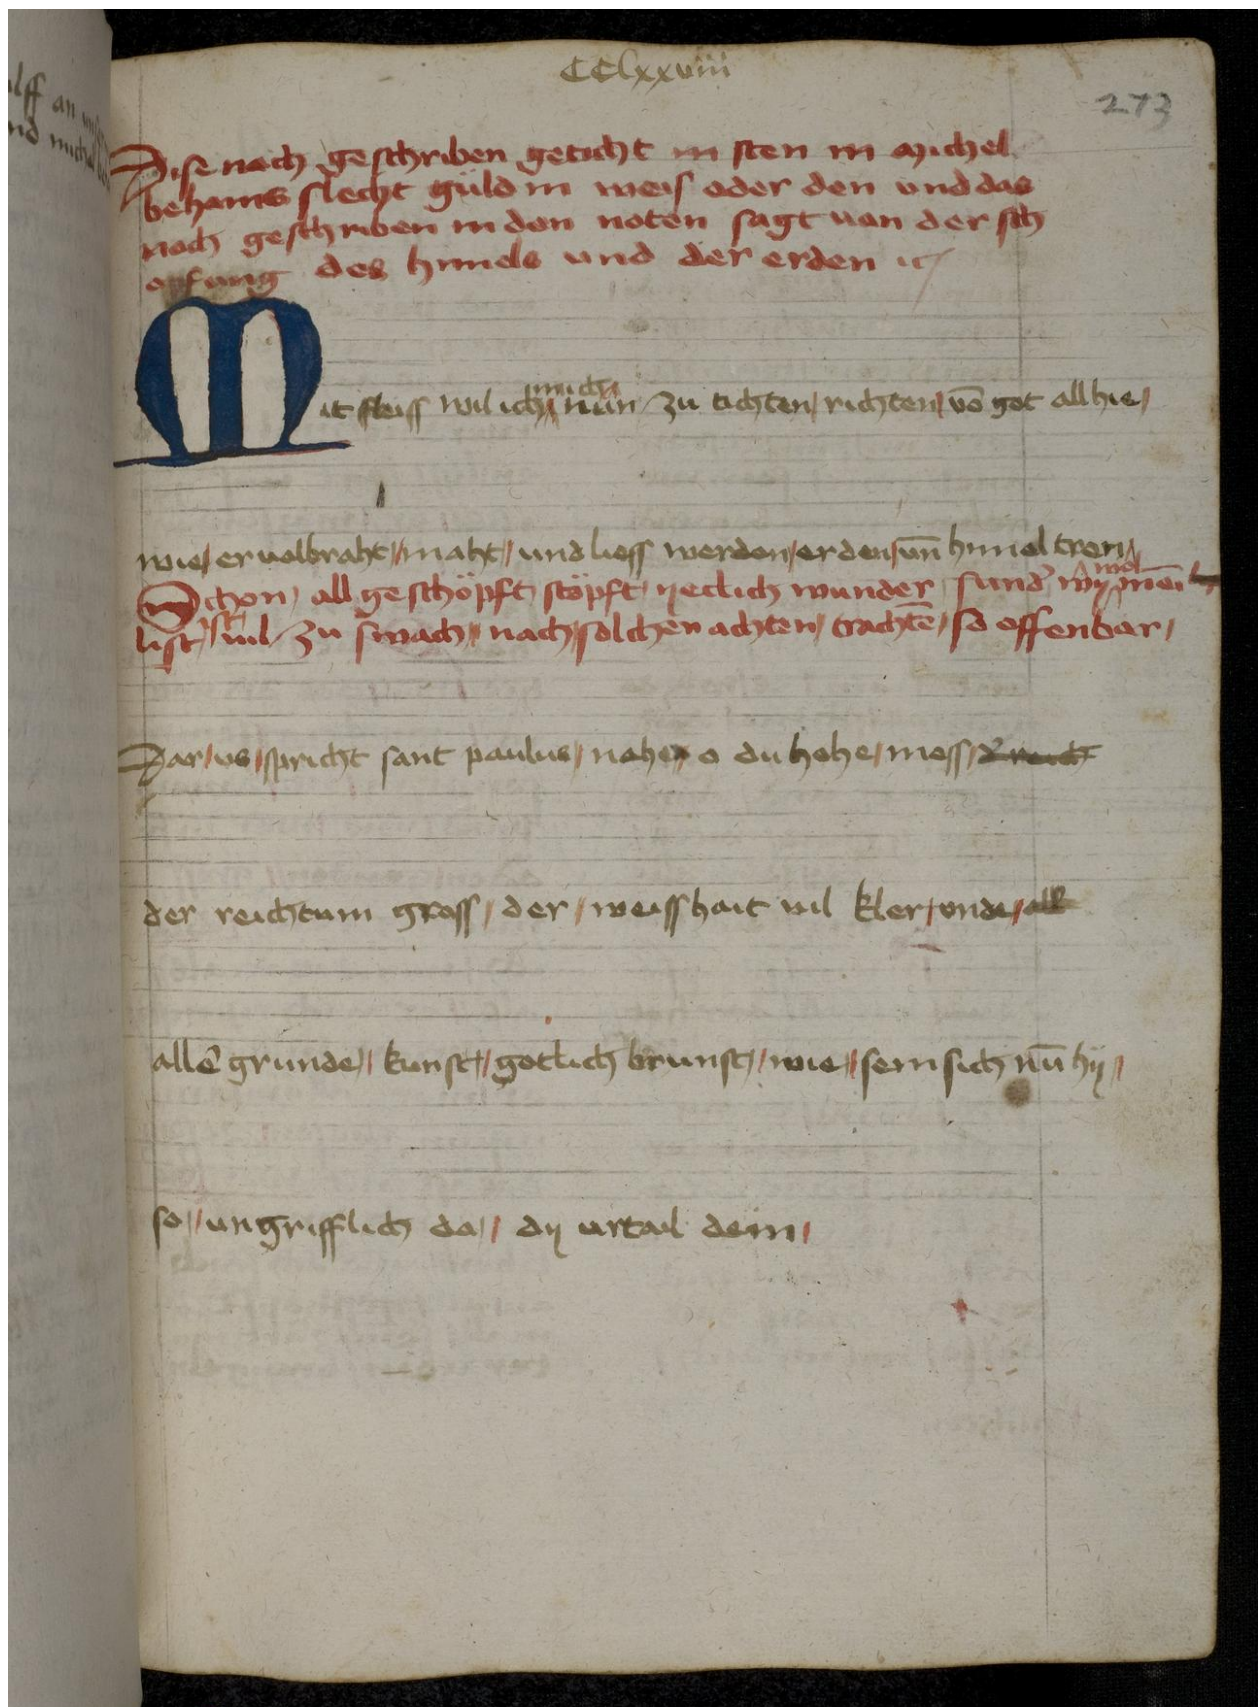 CClxxviii
273
Dise noch geschriben geticht in sten in michel
behams slecht guldin weis oder don und das
noch geschriben in den noten sagt uon der sch
opfung des himels und der erden
Mit fleiss wil ich mich nün zu tichten / richten / vō got all hie /
wie / er volbraht // maht // und liess werden / erden / vnn himel tron
Schon / all geschöpft stöpft yeclich wunder / sund'
list / vil zu swach / nach / solchen achten / trachtē / so offenbar /
Dar / vs / spricht sant paulus / nohe / o du hohe / moss /
der reichtum gross / der / weisshait vil kler / vnde / alle
allē grunde // kunst // gotlich brunst // wie / sem sich nū hÿ /
so // ungrifflich do // dy vrtail dein /